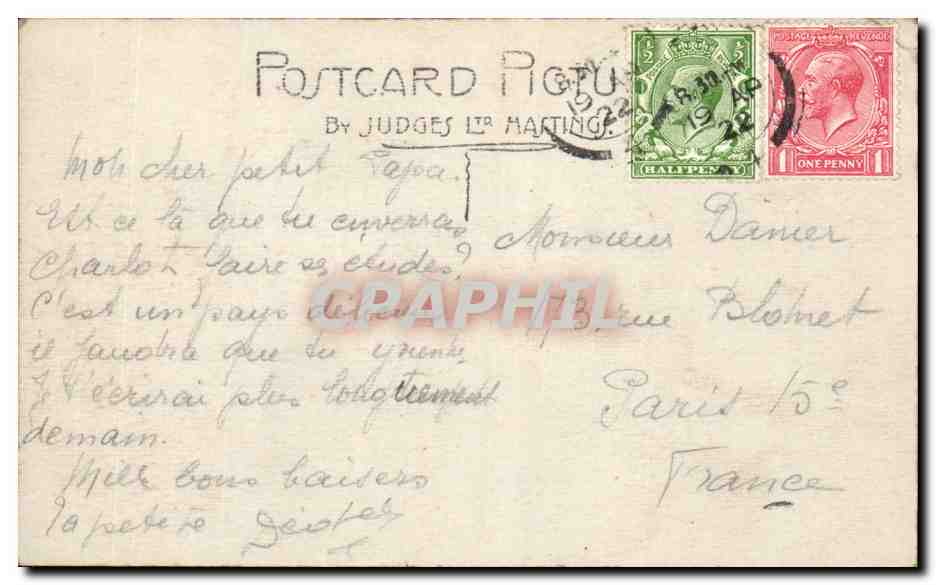 POSTCARD PICTU
BY JUDGES LTD HASTINGS.
1/2 1/2
HALFPENNY
POSTAGE REVENUE
1 ONE PENNY 1
8.30
19 AP
22
8.30
19 AP
22
Mon cher petit Papa.
Est ce là que tu enverras
Charlot faire ses études?
C'est un pays
il faudra que tu y
Je t'écrirai plus longuement
demain.
Mille bons baisers
ta petite
Monsieur Danier
73, rue Blomet
Paris 15e
France
CPAPHIL